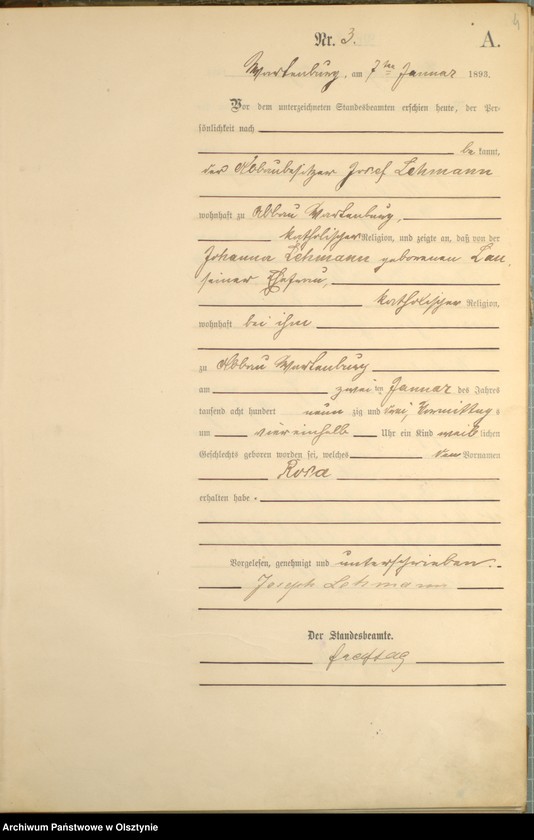 4
Nr. 3. A.
Wartenburg, am 7ten Januar 1893.
Vor dem unterzeichneten Standesbeamten erschien heute, der Per-
sönlichkeit nach
be kannt,
der Abbaubesitzer Josef Lehmann
wohnhaft zu Abbau Wartenburg,
katholischer Religion, und zeigte an, daß von der
Johanna Lehmann geborenen Lau,
seiner Ehefrau,
katholischer Religion,
wohnhaft bei ihm
zu Abbau Wartenburg
am zwei ten Januar des Jahres
tausend acht hundert neun zig und drei, Vormittag s
um viereinhalb Uhr ein Kind weib lichen
Geschlechts geboren worden sei, welches den Vornamen
Rosa
erhalten habe.
Vorgelesen, genehmigt und unterschrieben.
Joseph Lehmann
Der Standesbeamte.
Freytag
Archiwum Państwowe w Olsztynie